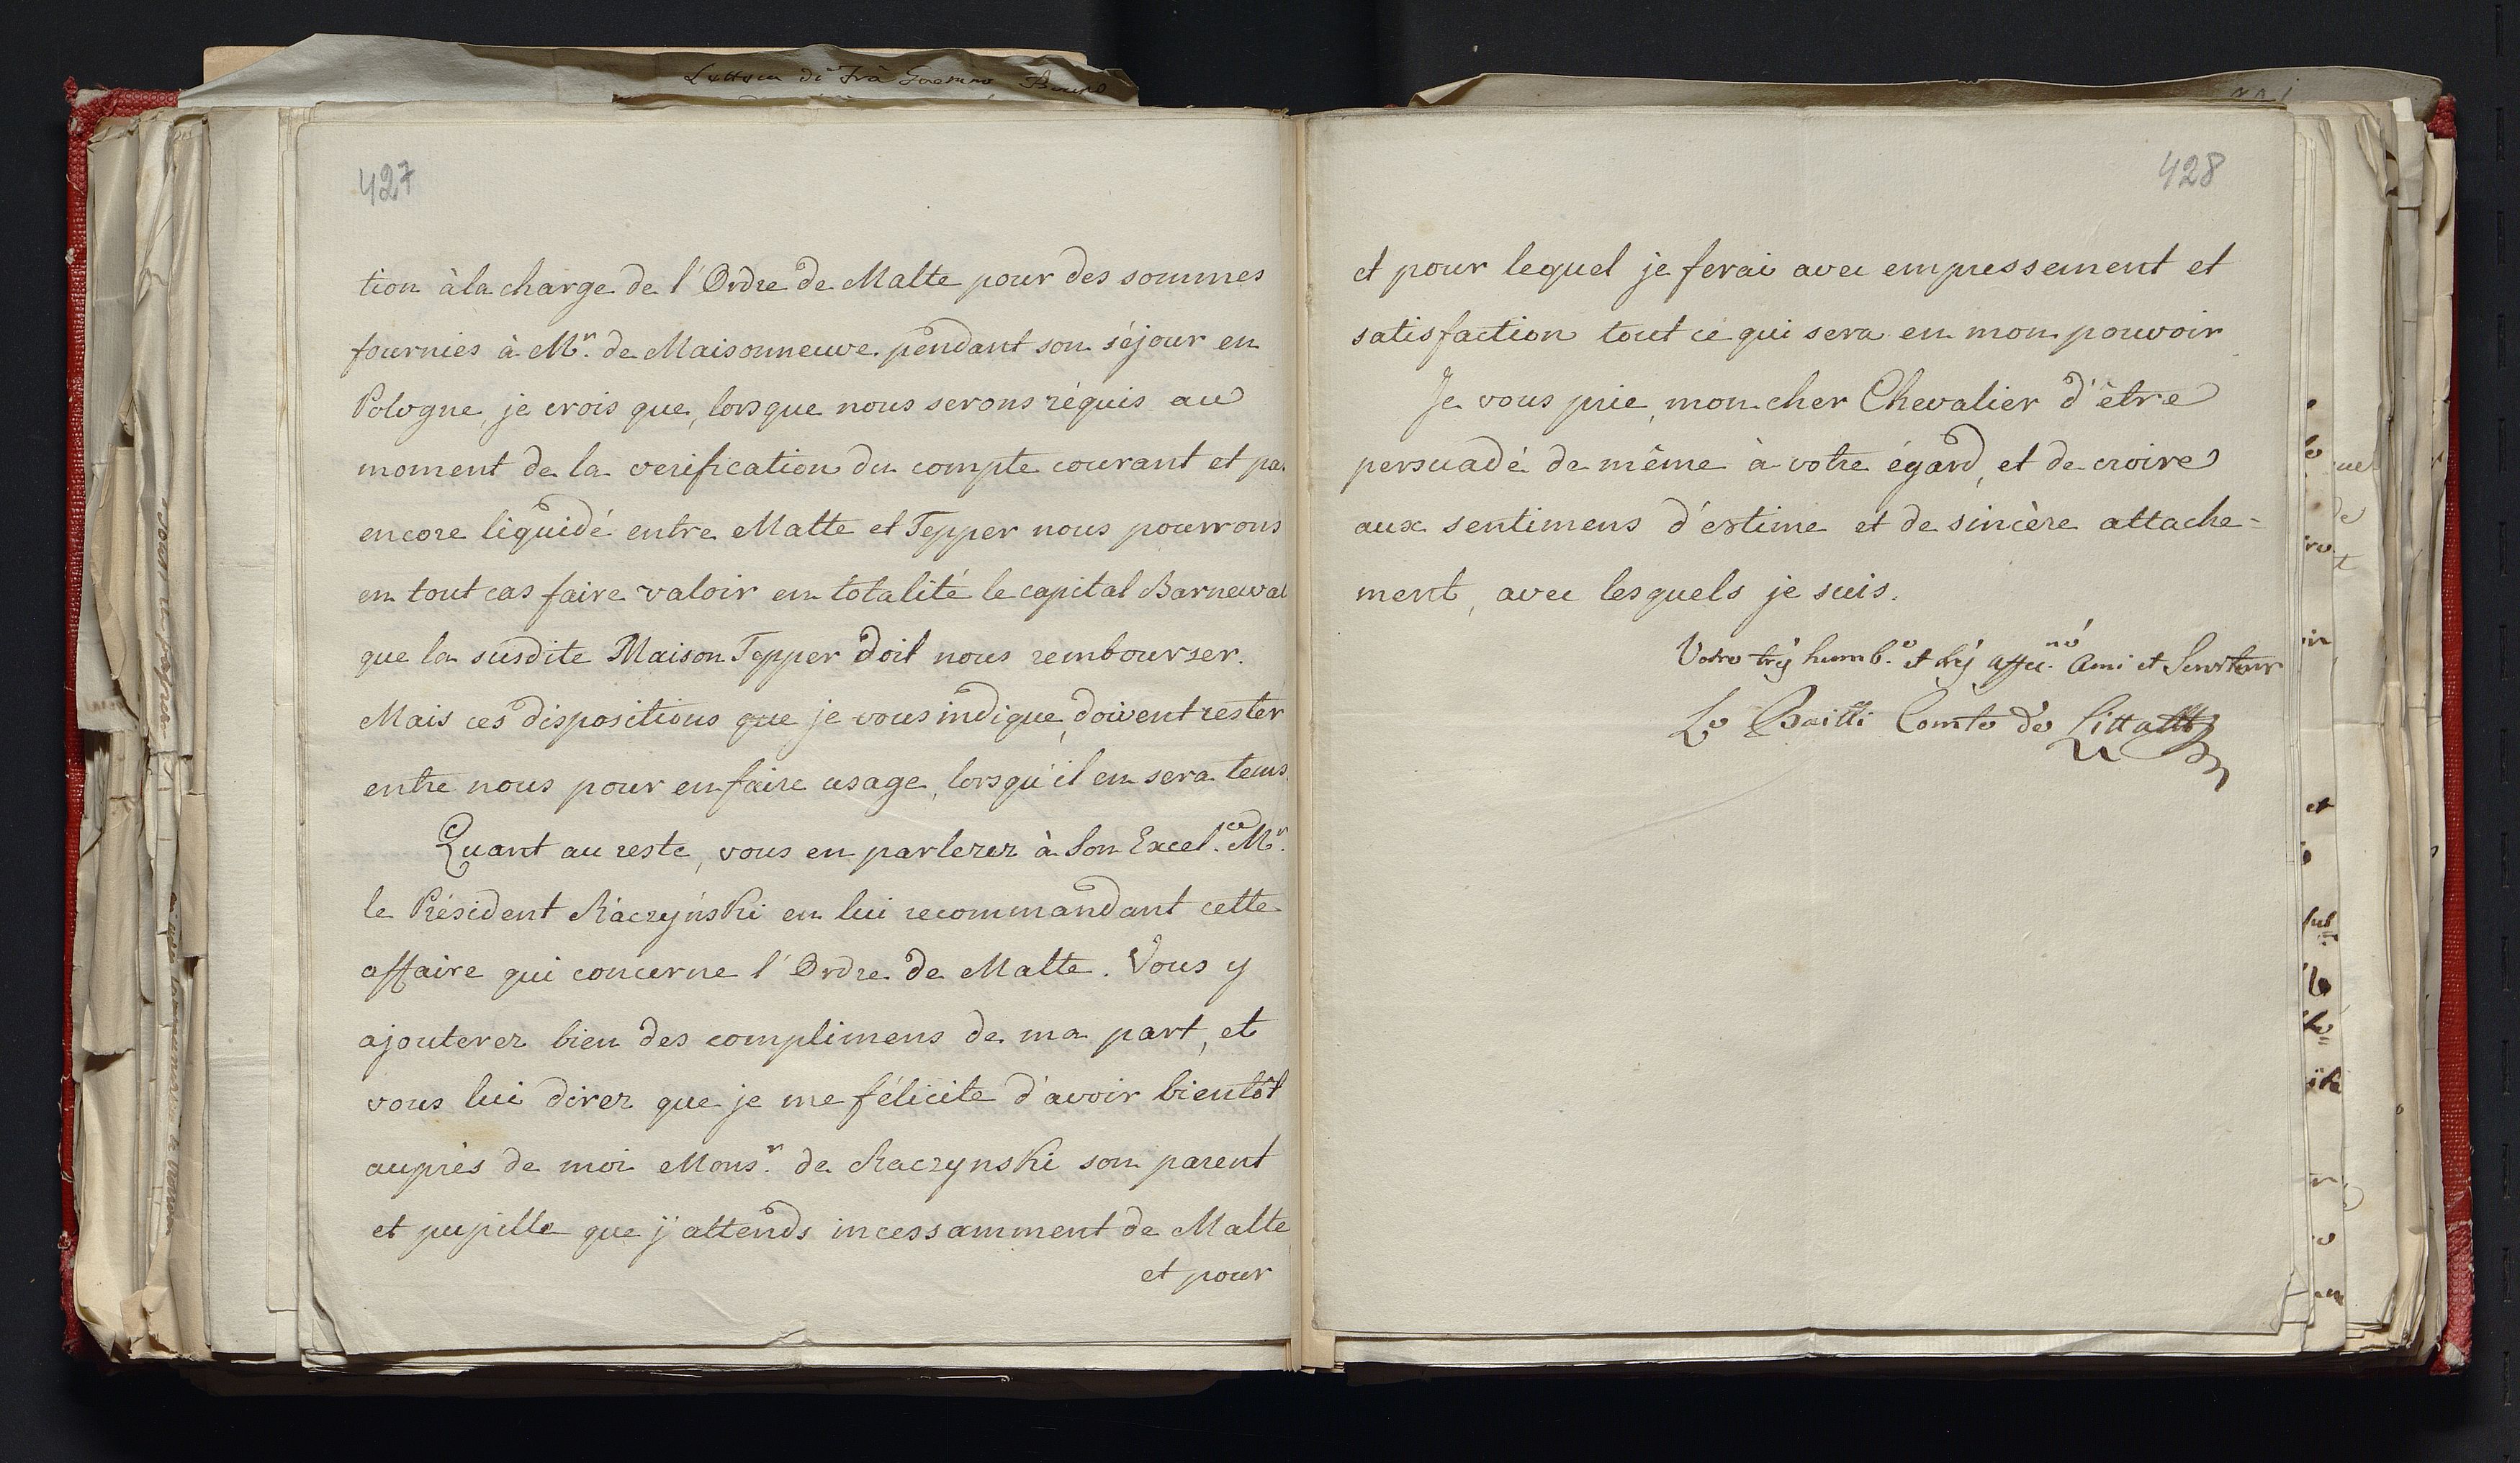 427
tion à la charge de l'Ordre de Malte pour des sommes
fournies à Mr. de Maisonneuve pendant son séjour en
Pologne, je crois que, lorsque nous serons réquis au
moment de la verification du compte courant et pa
encore liquidé entre Malte et Tepper nous pourrons
en tout cas faire valoir en totalité le capital Barneval
que la susdite Maison Tepper doit nous rembourser.
Mais ces dispositions que je vous indique, doivent rester
entre nous pour en faire usage, lorsqu'il en sera tems.
Quant au reste, vous en parlerez à Son Excel.ce Mr.
le Président Raczyński en lui recommandant cette
affaire qui concerne l'Ordre de Malte. Vous y
ajouterez bien des complimens de ma part, et
vous lui direz que je me félicite d'avoir bientôt
auprès de moi Monsr. de Raczynski son parent
et pupille que j'attends incessamment de Malte,
et pour
428
et pour lequel je ferai avec empressement et
satisfaction tout ce qui sera en mon pouvoir.
Je vous prie, mon cher Chevalier d'être
persuadé de même à votre égard, et de croire
aux sentimens d'estime et de sincère attache=
ment, avec lesquels je suis.
Votre trẏ humb.e et trẏ affec.né Ami et Serviteur
Le Bailli Comte de Litta